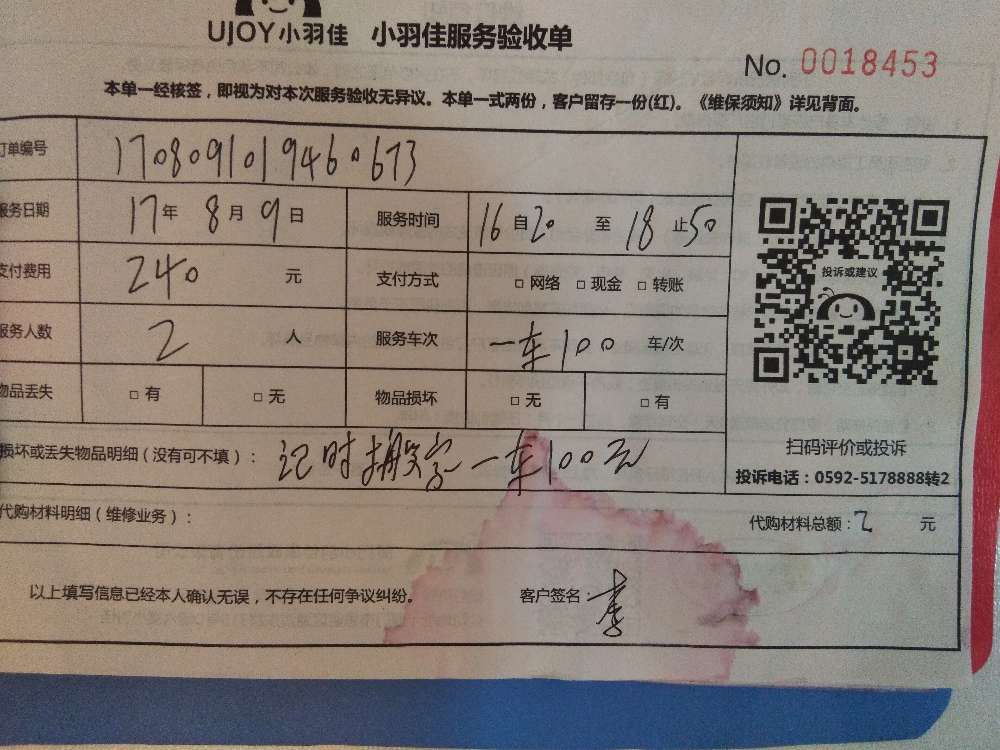 UJOY小羽佳 小羽佳服务验收单
No. 0018453
本单一经核签，即视为对本次服务验收无异议。本单一式两份，客户留存一份(红)。《维保须知》详见背面。
订单编号 1708091019460673
服务日期 17年 8月 9日 服务时间 16自20 至 18止50
支付费用 240 元 支付方式 □网络 □现金 □转账
投诉或建议
服务人数 2 人 服务车次 一车100 车/次
物品丢失 □有 □无 物品损坏 □无 □有
扫码评价或投诉
损坏或丢失物品明细（没有可不填）： 记时搬家一车100元
投诉电话：0592-5178888转2
代购材料明细（维修业务）： 代购材料总额： 元
以上填写信息已经本人确认无误，不存在任何争议纠纷。 客户签名：李